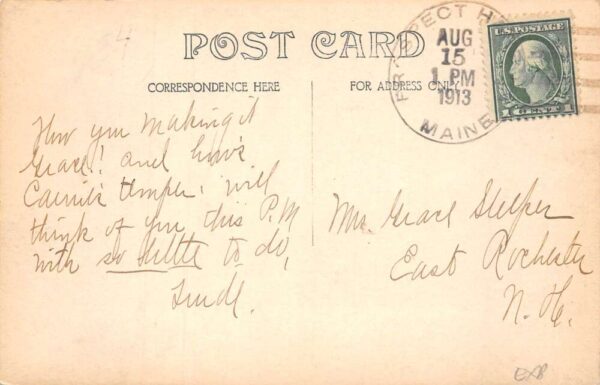 POST CARD
CORRESPONDENCE HERE
FOR ADDRESS ONLY
PROSPECT H
AUG
15
1 PM
1913
MAINE
U.S. POSTAGE
1 CENT 1
How you making it
Grace! and how's
temper. will
think of you this P.M
with so little to do,
Mrs. Grace Sleeper
East Rochester
N. H.
EXP